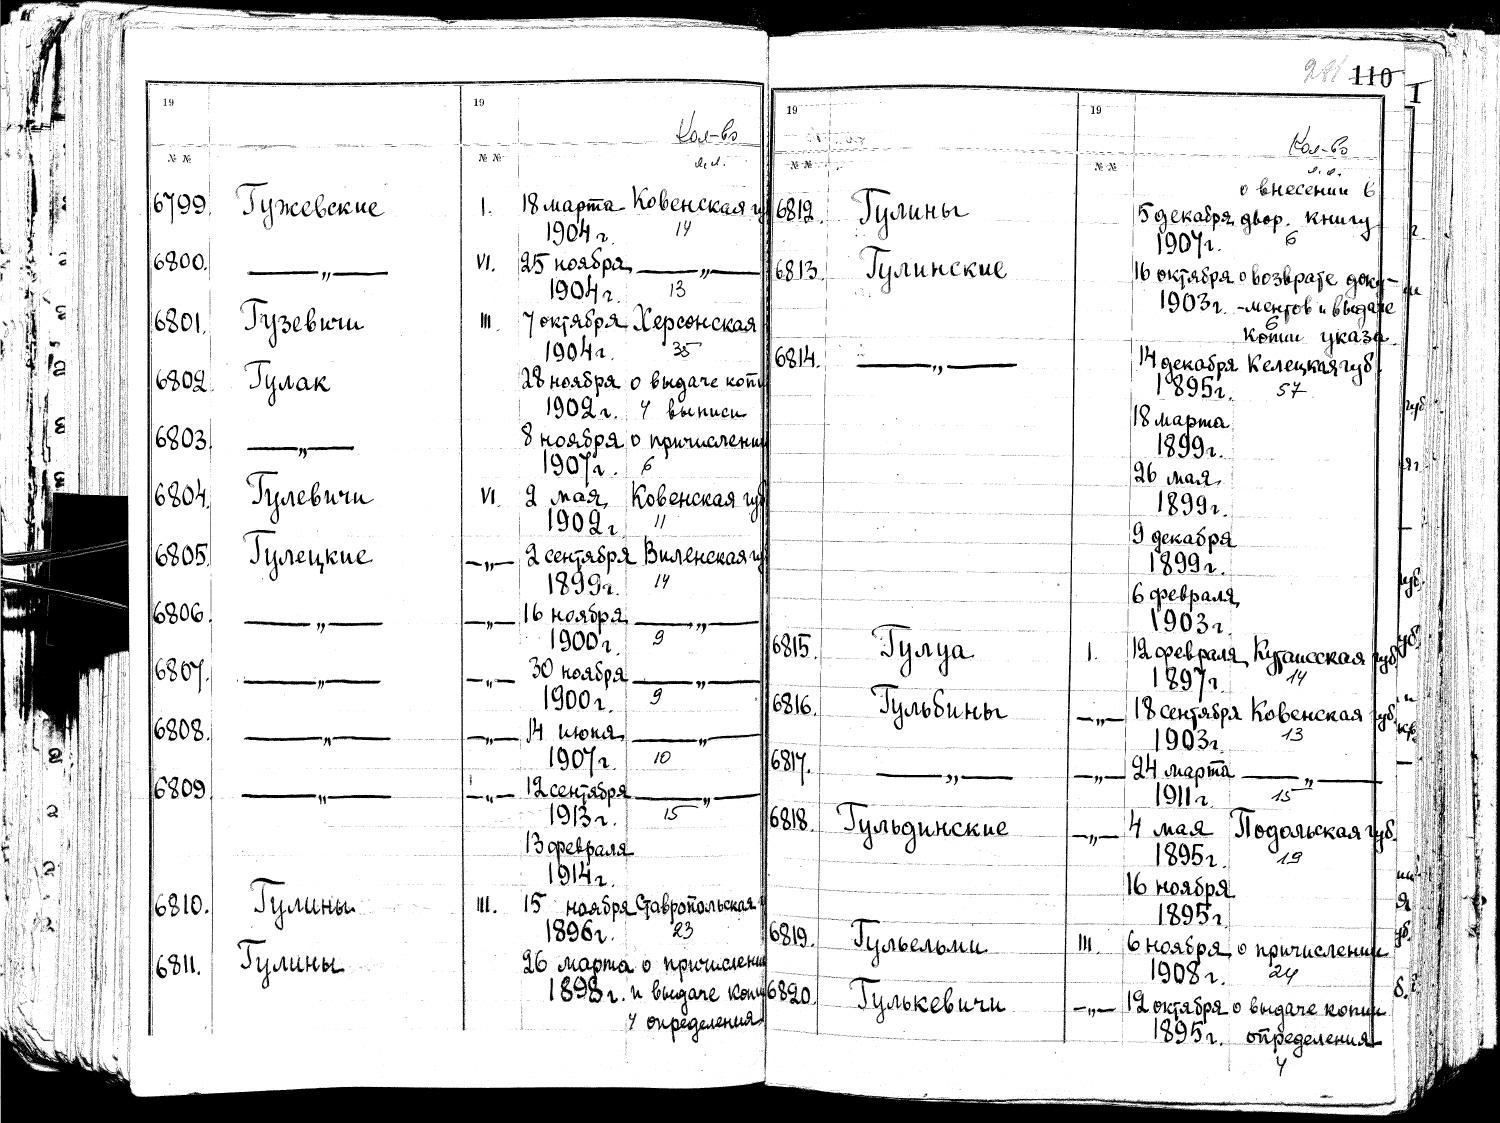 19 19
Кол-во
№№ №№ л.л.
6799. Гужевские I. 18 марта Ковенская гу
1904 г. 14
6800. —„— VI. 25 ноября —„—
1904 г. 13
6801. Гузевичи III. 7 октября Херсонская
1904 г. 35
6802. Гулак 28 ноября о выдаче копи
1902 г. 4 выписи
6803. —„— 8 ноября о причислении
1907 г. 6
6804. Гулевичи VI. 2 мая Ковенская губ
1902 г. 11
6805. Гулецкие —„— 2 сентября Виленская гу
1899 г. 14
6806. —„— —„— 16 ноября —„—
1900 г. 9
6807. —„— —„— 30 ноября —„—
1900 г. 9
6808. —„— —„— 14 июня —„—
1907 г. 10
6809. —„— —„— 12 сентября —„—
1913 г. 15
13 февраля
1914 г.
6810. Гулины III. 15 ноября Ставропольская
1896 г. 23
6811. Гулины 26 марта о причислени
1898 г. и выдаче копи
4 определения
110
19 19
Кол-во
№№ №№ л.л.
о внесении в
6812. Гулины 5 декабря двор. книгу
1907 г. 6
6813. Гулинские 16 октября о возврате доку-
1903 г. -ментов и выдаче
6
копии указа
6814. —„— 14 декабря Келецкая губ.
1895 г. 57
18 марта
1899 г.
26 мая
1899 г.
9 декабря
1899 г.
6 февраля
1903 г.
6815. Гулуа I. 12 февраля Кутаисская губ.
1897 г. 14
6816. Гульбины —„— 18 сентября Ковенская губ.
1903 г. 13
6817. —„— —„— 24 марта —„—
1911 г. 15
6818. Гульдинские —„— 4 мая Подольская губ.
1895 г. 19
16 ноября
1895 г.
6819. Гульельми III. 6 ноября о причислении
1908 г. 24
6820. Гулькевичи —„— 12 октября о выдаче копии
1895 г. определения
4